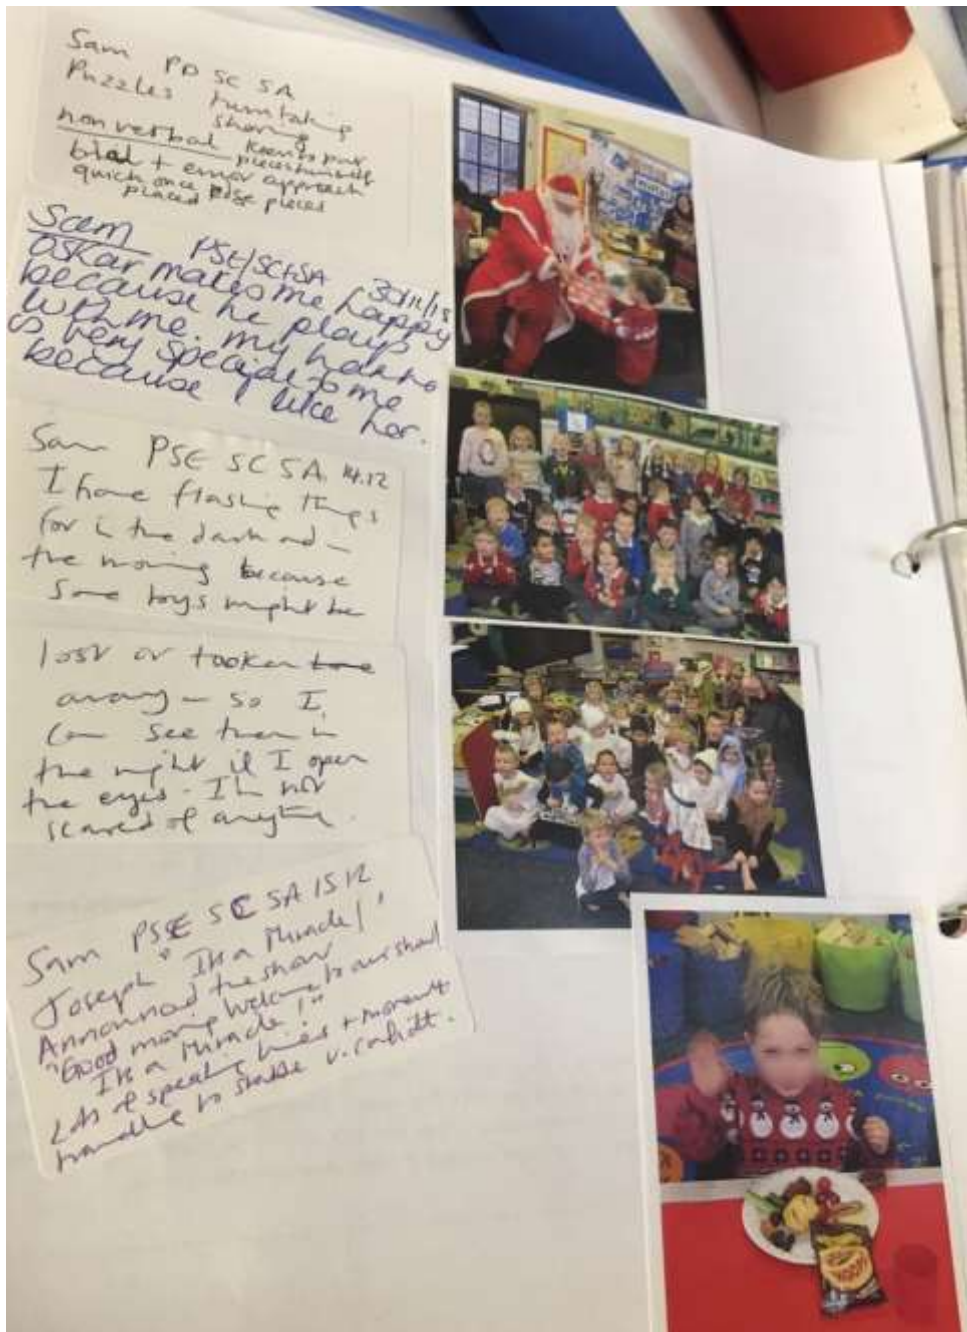 Sam PD SC SA
Puzzles turn taking
sharing
non verbal Keen to put
pieces himself
trial + error approach
quick once edge pieces
placed
Sam PSE/SC+SA 30/11/15
Oskar makes me happy
because he plays
with me. my
is very special to me
because I like her.
Sam PSE SC SA 14.12
I have flashing things
for in the dark and -
the morning because
some toys might be
lost or tooken
away - so I
can see them in
the night if I open
the eyes. I'm not
scared of anything.
Sam PSE SC SA 15 12
Joseph "It's a Miracle!"
Announced the show
"Good morning Welcome to our show!
It's a Miracle!"
Lots of speaking lines + movement
to stable v. confident.